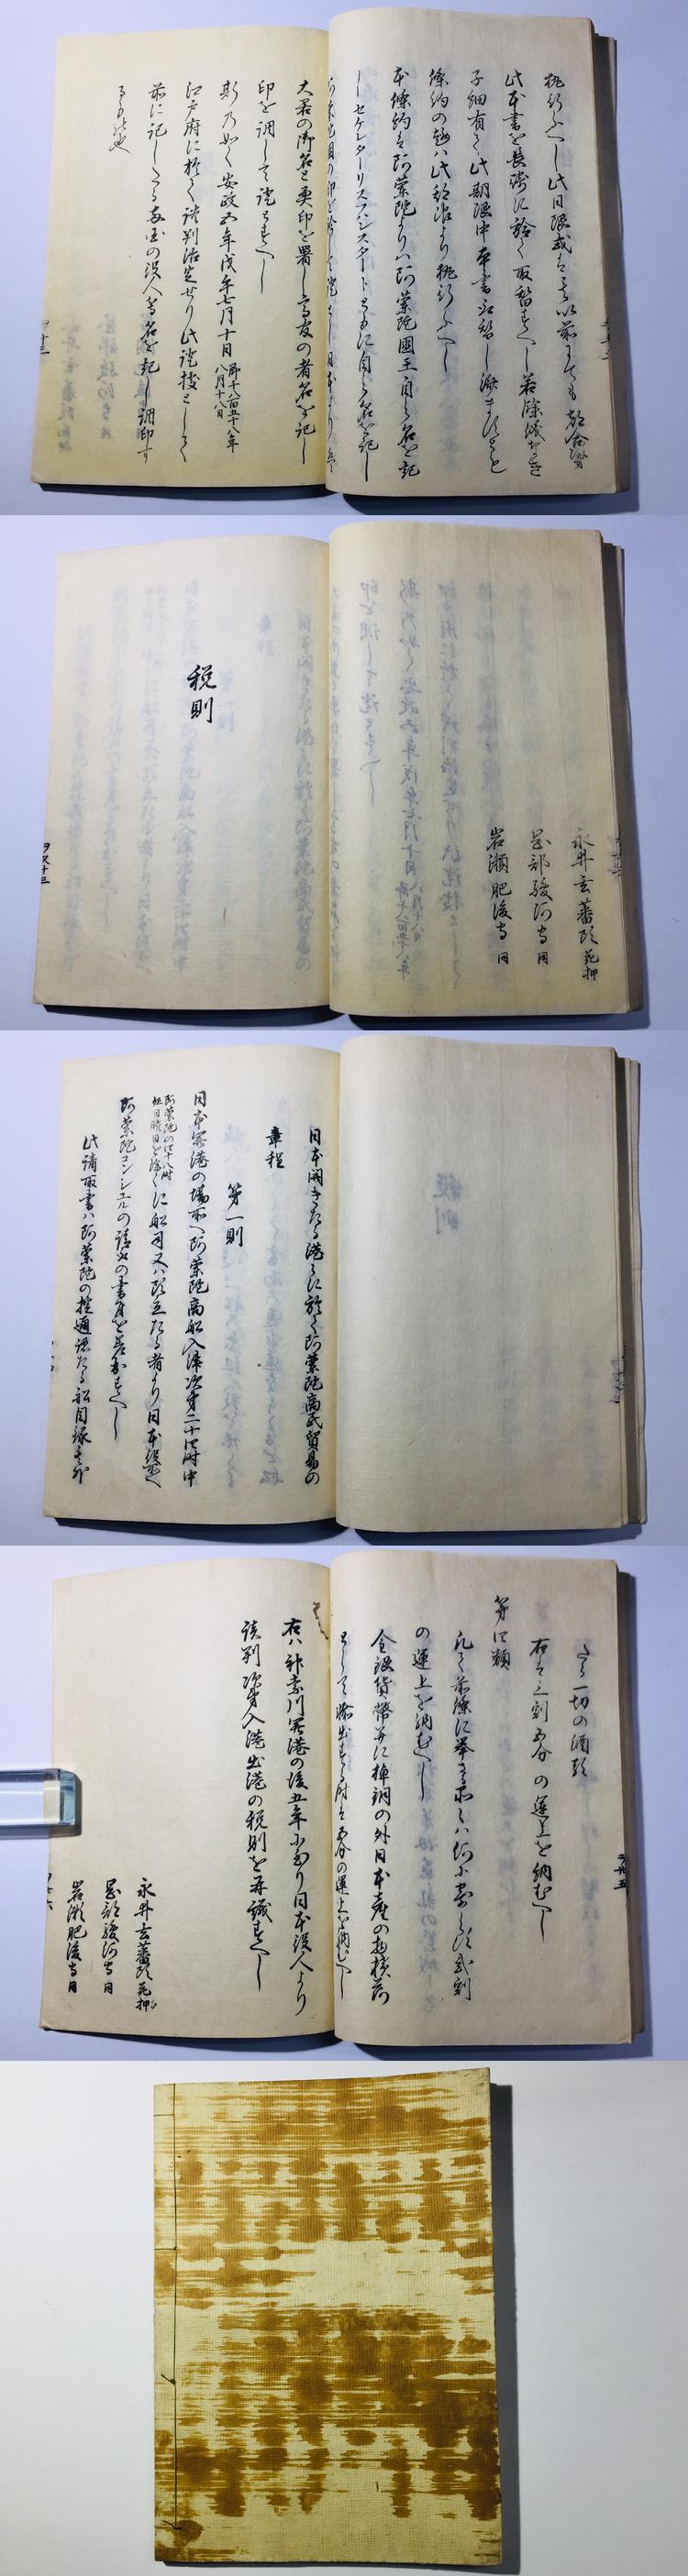 此本書を長崎に於て取替すへし若餘儀なき
子細有て此期限中本書取替し済まずとも
條約の趣ハ此期限より執行ふへし
本條約ハ阿蘭陀よりハ阿蘭陀國王自ら名を記
しセケレターリスファンスタートともに自ら名を記し
大君の御名と奧印を署し高友の者名を記し
印を調して證とすへし
斯乃如く安政五年戊午七月十日 即千八百五十八年八月十八日
江戸府に於て談判治定せり此證拠として
前に記したる両国の役人等名を記し調印す
るもの也
永井玄蕃頭 花押
岡部駿河守 同
岩瀬肥後守 同
税則
日本開きたる港々に於て阿蘭陀商民貿易の
章程
第一則
日本開港の場所へ阿蘭陀商船入津次第二十四時中
阿蘭陀の四十八時
但日曜日を除くに船司又ハ頭立たる者より日本役所へ
阿蘭陀コンシュルの請取の書付を差出すへし
此請取書ハ阿蘭陀の
たる一切の酒類
右ハ三割五分の運上を納むへし
第四類
凡て前條に挙さる所々ハ何に寄らす弐割
の運上を納むへし
金銀貨幣并に棹銅の外日本産の物積荷
として輸出する時ハ五分の運上を納むへし
右ハ神奈川開港の後五年に至り日本役人より
談判次第入港出港の税則を再議すへし
永井玄蕃頭 花押
岡部駿河守 同
岩瀬肥後守 同